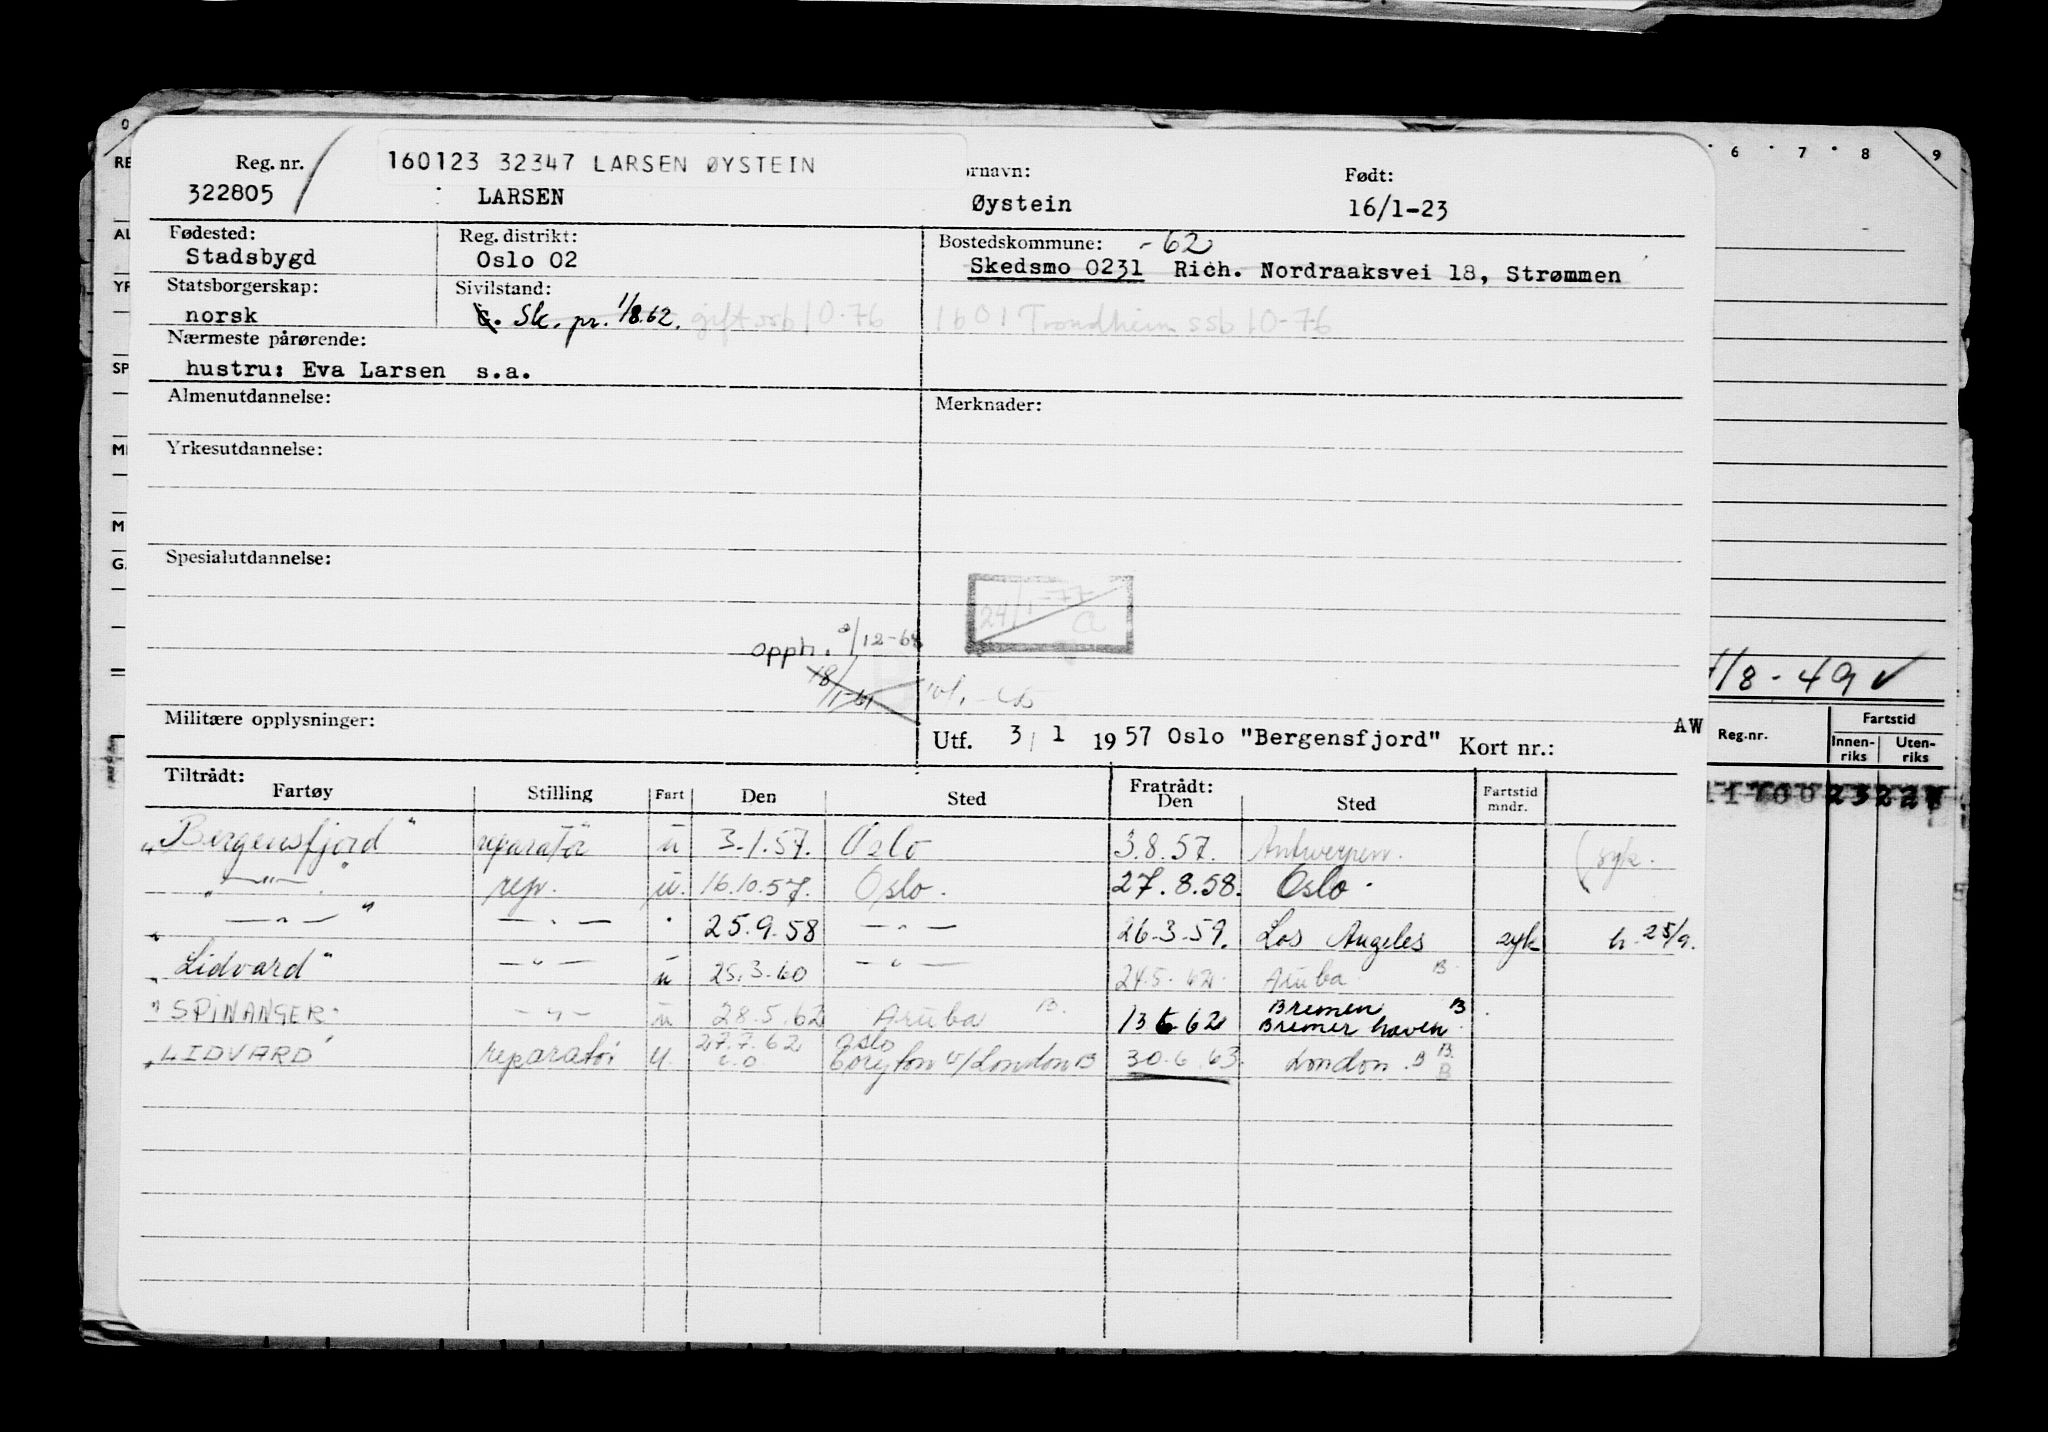 160123 32347 LARSEN ØYSTEIN
Reg. nr. 322805
LARSEN
rnavn: Øystein
Født: 16/1-23
Fødested: Stadsbygd
Reg. distrikt: Oslo 02
Bostedskommune: -62
Skedsmo 0231 Rich. Nordraaksvei 18, Strømmen
Statsborgerskap: norsk
Sivilstand: Sk. pr. 1/8.62. gift ssb 10-76
1601 Trondheim ssb 10-76
Nærmeste pårørende:
hustru: Eva Larsen s.a.
Almenutdannelse:
Merknader:
Yrkesutdannelse:
Spesialutdannelse:
24/1-77
opph.
Militære opplysninger:
Utf. 3/1 1957 Oslo "Bergensfjord" Kort nr.:
AW
Tiltrådt:
Fartøy Stilling Fart Den Sted
Fratrådt:
Den Sted
Fartstid mndr.
"Bergensfjord" reparatör u 3.1.57. Oslo 3.8.57. Antwerpen. (syk.
" — " — " rep. u. 16.10.57. Oslo. 27.8.58. Oslo.
" — " — " — " — 25.9.58 — " — 26.3.59. Los Angeles syk h. 25/9.
"Lidvard" — " — u 25.3.60 — " — 24.5.62. Aruba B.
"SPINANGER" — " — u 28.5.62 Aruba B. 13 6 62 Bremen B
Bremerhaven
"LIDVARD" reparatör u. 27.7.62 Oslo
Coryton v/London B 30.6.63. London. B B.
B
6 7 8 9
1/8-49 ✓
Reg.nr.
Fartstid
Innen-riks Uten-riks